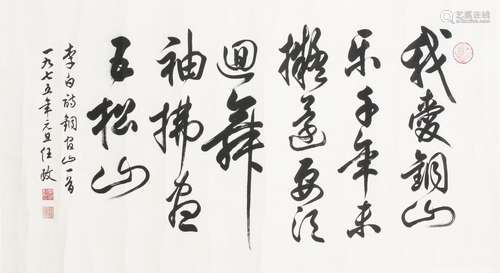 我爱铜山
乐千年未
拟还要须
回舞
袖拂尽
五松山
李白诗铜官山一首
一九七五年元旦任政